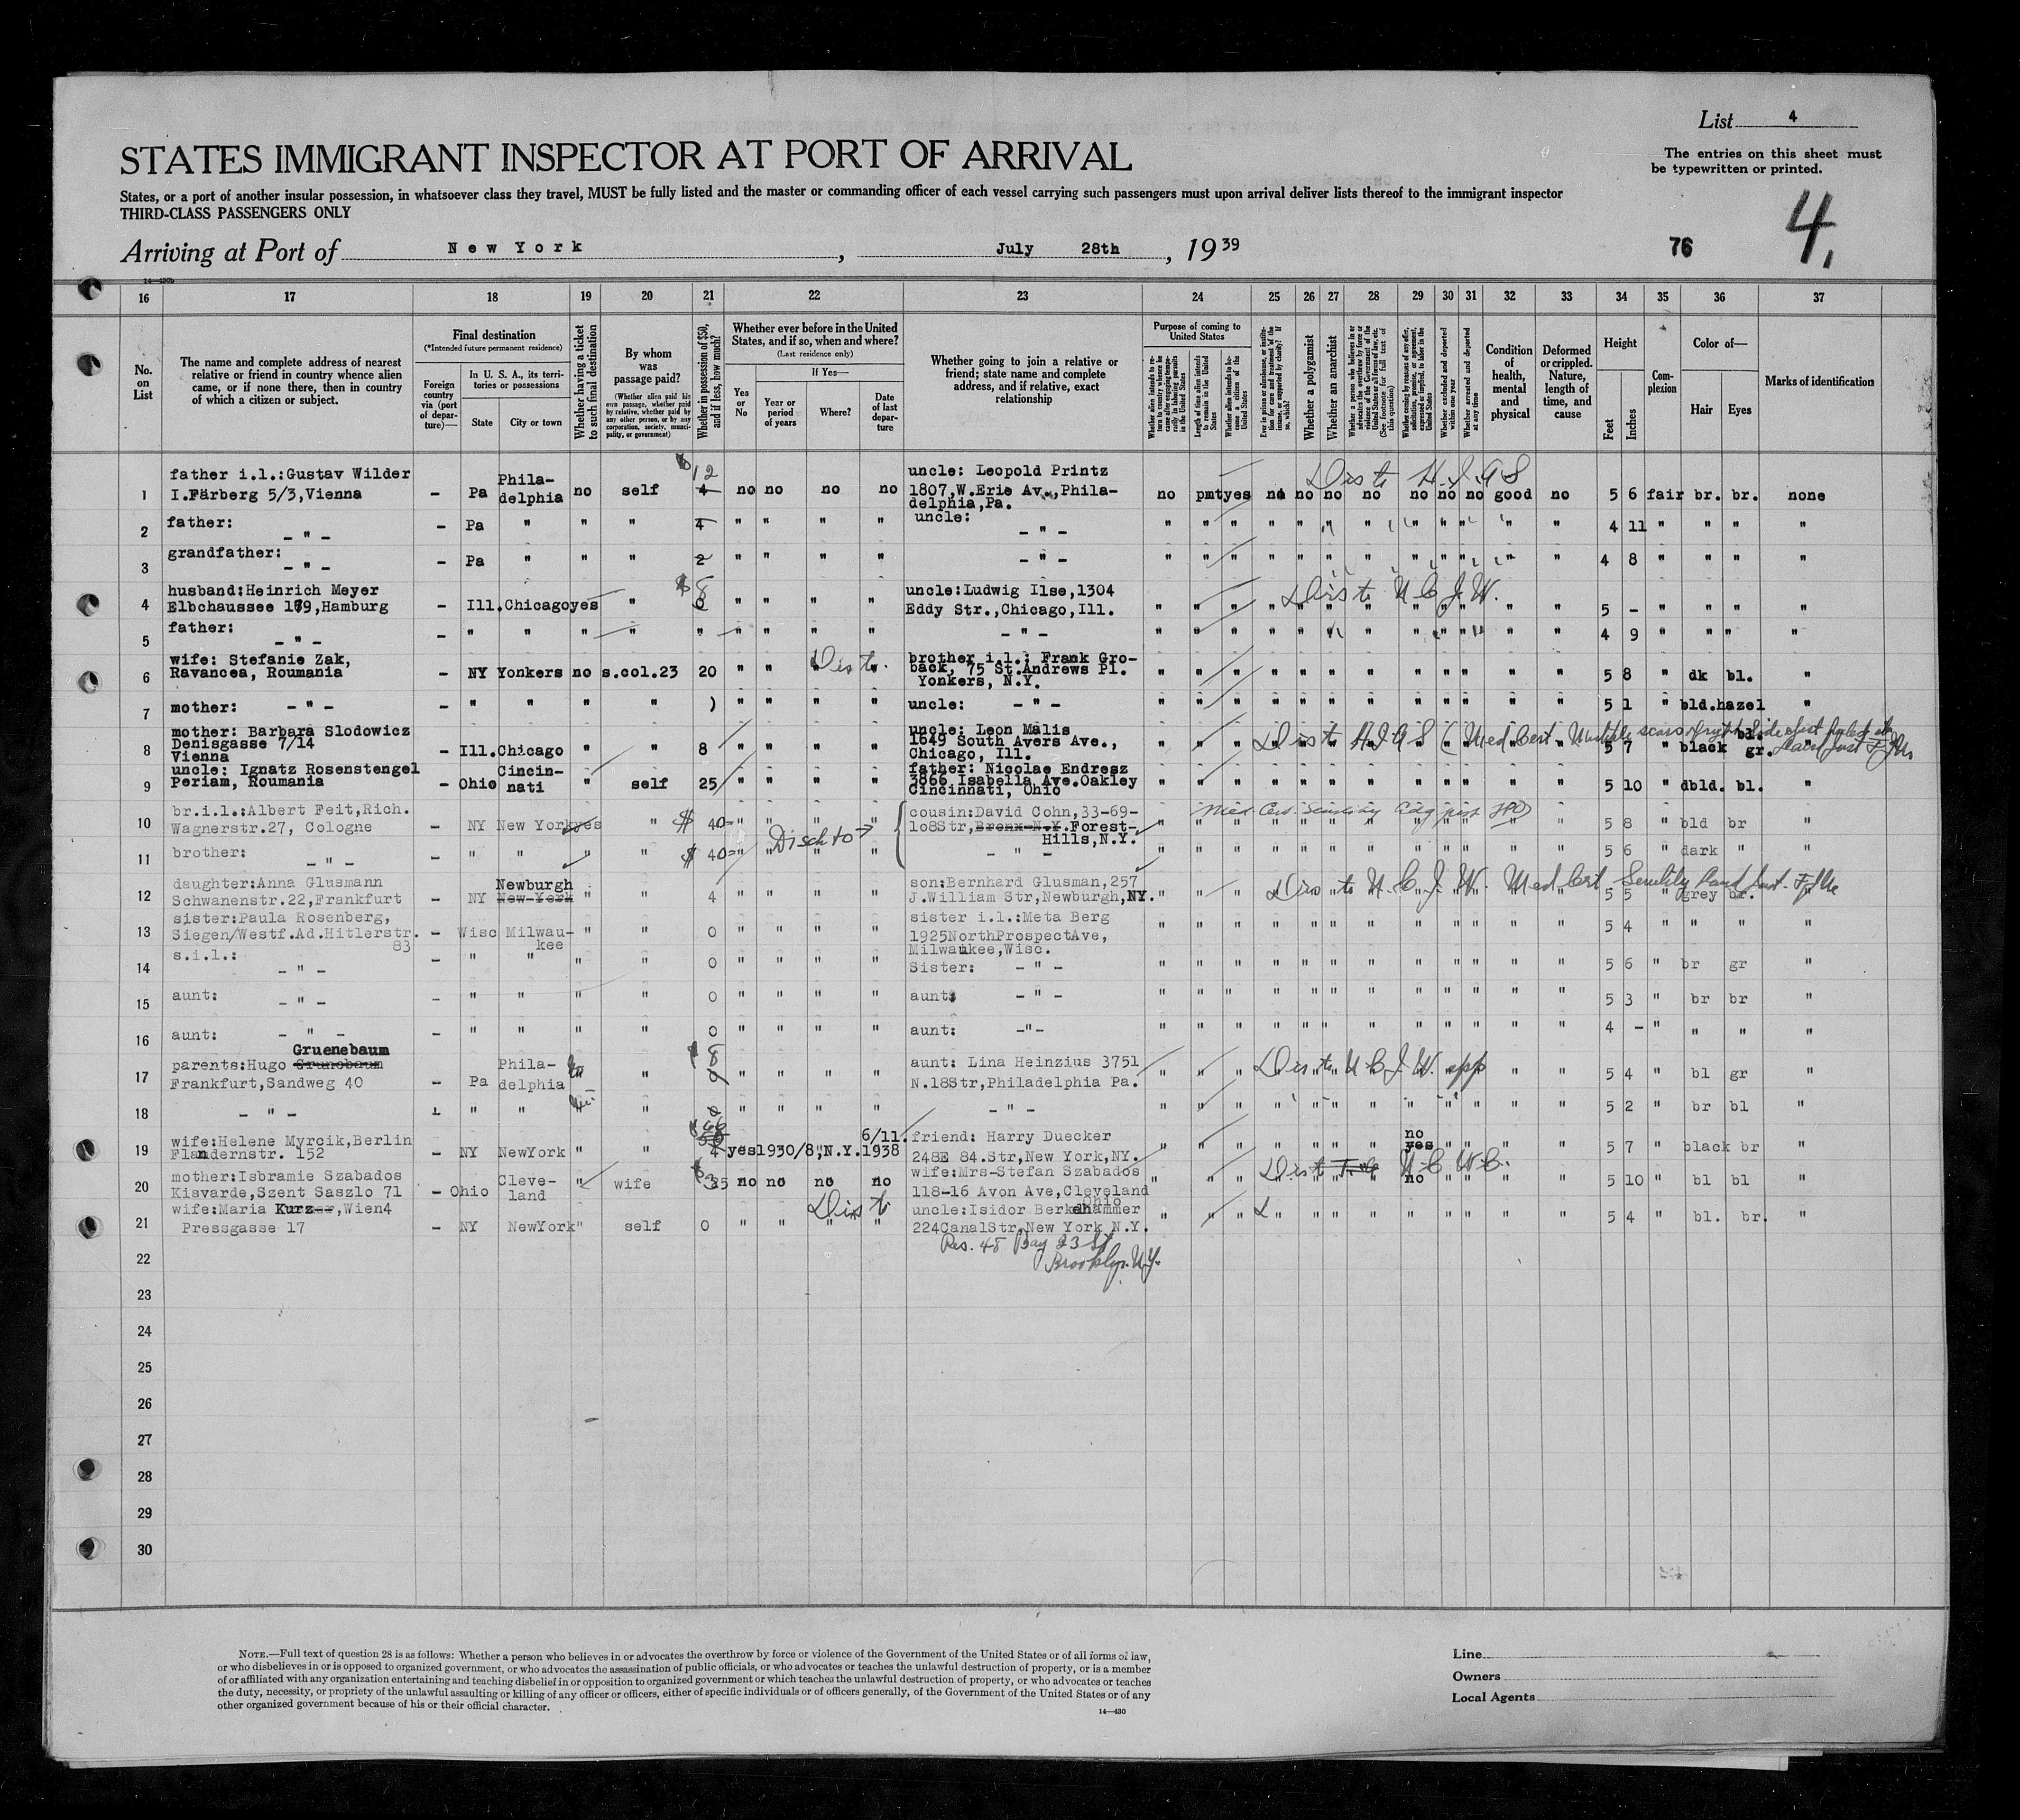 List 4
The entries on this sheet must
be typewritten or printed.
STATES IMMIGRANT INSPECTOR AT PORT OF ARRIVAL
States, or a port of another insular possession, in whatsoever class they travel, MUST be fully listed and the master or commanding officer of each vessel carrying such passengers must upon arrival deliver lists thereof to the immigrant inspector
THIRD-CLASS PASSENGERS ONLY
4.
Arriving at Port of New York, July 28th, 1939
76
16 17 18 19 20 21 22 23 24 25 26 27 28 29 30 31 32 33 34 35 36 37
No. on List
The name and complete address of nearest relative or friend in country whence alien came, or if none there, then in country of which a citizen or subject.
Final destination
(*Intended future permanent residence)
Foreign country via (port of departure)—
In U. S. A., its territories or possessions
State
City or town
Whether having a ticket to such final destination
By whom was passage paid?
(Whether alien paid his own passage, whether paid by relative, whether paid by any other person, or by any corporation, society, municipality, or government)
Whether in possession of $50, and if less, how much?
Whether ever before in the United States, and if so, when and where?
(Last residence only)
Yes or No
If Yes—
Year or period of years
Where?
Date of last departure
Whether going to join a relative or friend; state name and complete address, and if relative, exact relationship
Purpose of coming to United States
Length of time alien intends to remain in the United States
Whether alien intends to become a citizen of the United States
Whether a polygamist
Whether an anarchist
Whether excluded and deported within one year
Whether arrested and deported at any time
Condition of health, mental and physical
Deformed or crippled. Nature, length of time, and cause
Height
Feet
Inches
Complexion
Color of—
Hair
Eyes
Marks of identification
1 father i.l.:Gustav Wilder I.Färberg 5/3,Vienna – Pa Philadelphia no self 4 $12 no no no no uncle: Leopold Printz 1807,W.Erie Av.,Philadelphia,Pa. no pmt yes no no no no no no no good no 5 6 fair br. br. none
2 father: – " – – Pa " " " 4 " " " " uncle: – " – 4 11 " " " "
3 grandfather: – " – – Pa " " " 2 " " " " – " – 4 8 " " " "
4 husband:Heinrich Meyer Elbchaussee 179,Hamburg – Ill. Chicago yes " $8 " " " " uncle:Ludwig Ilse,1304 Eddy Str.,Chicago,Ill. 5 – " " " "
5 father: – " – – " " " " " " " " " – " – 4 9 " " " "
6 wife: Stefanie Zak, Ravancea, Roumania – NY Yonkers no s.col.23 20 " " " brother i.l.: Frank Groback, 75 St.Andrews Pl. Yonkers, N.Y. 5 8 " dk bl. "
7 mother: – " – – " " " " ) " " " " uncle: – " – 5 1 " bld. hazel "
8 mother: Barbara Slodowicz Denisgasse 7/14 Vienna – Ill. Chicago " " 8 " " " " uncle: Leon Malis 1649 South Avers Ave., Chicago, Ill. Dis to HIAS Med Cert 5 7 " black gr. bl.
9 uncle: Ignatz Rosenstengel Periam, Roumania – Ohio Cincinnati " self 25 " " " " father: Nicolae Endresz 3866 Isabella Ave.Oakley Cincinnati, Ohio 5 10 " dbld. bl. "
10 br.i.l.:Albert Feit,Rich. Wagnerstr.27, Cologne – NY New York yes " $ 40– " " " " cousin:David Cohn,33-69- lo8Str,Bronx-N.Y.Forest- Hills,N.Y. 5 8 " bld br "
Disch to
11 brother: – " – – " " " " $ 40– " " " " – " – 5 6 " dark " "
12 daughter:Anna Glusmann Schwanenstr.22,Frankfurt – NY Newburgh New-York " " 4 " " " " son:Bernhard Glusman,257 J.William Str,Newburgh,NY. Dis to N.C.J.W. Med Cert Senility 5 5 " grey br.
13 sister:Paula Rosenberg, Siegen/Westf.Ad.Hitlerstr. 83 – Wisc Milwaukee " " 0 " " " " sister i.l.:Meta Berg 1925NorthProspectAve, Milwaukee,Wisc. 5 4 " " " "
14 s.i.l.: – " – – " " " " 0 " " " " Sister: – " – 5 6 " br gr "
15 aunt: – " – – " " " " 0 " " " " aunt: – " – 5 3 " br br "
16 aunt: – " – – " " " " 0 " " " " aunt: –"– 4 – " " " "
17 parents:Hugo Gruenebaum Frankfurt,Sandweg 40 – Pa Philadelphia " $8 " " " " aunt: Lina Heinzius 3751 N.18Str,Philadelphia Pa. Dis to N.C.J.W. 5 4 " bl gr "
18 – " – " " " 0 " " " " – " – 5 2 " br bl "
19 wife:Helene Myrcik,Berlin Flandernstr. 152 – NY NewYork " " 4 yes 1930/8 N.Y. 6/11. 1938 friend: Harry Duecker 248E 84.Str,New York,NY. no yes 5 7 " black br "
20 mother:Isbramie Szabados Kisvarde,Szent Saszlo 71 – Ohio Cleveland " wife 35 no no no no wife:Mrs-Stefan Szabados 118-16 Avon Ave,Cleveland Ohio no 5 10 " bl bl "
21 wife:Maria Kurz,Wien4 Pressgasse 17 – NY NewYork " self 0 " " " " uncle:Isidor Berkedhammer 224CanalStr,New York N.Y. 5 4 " bl. br. "
Res. 48 Bay 23 St
22 Brooklyn N.Y.
23
24
25
26
27
28
29
30
NOTE.—Full text of question 28 is as follows: Whether a person who believes in or advocates the overthrow by force or violence of the Government of the United States or of all forms of law,
or who disbelieves in or is opposed to organized government, or who advocates the assassination of public officials, or who advocates or teaches the unlawful destruction of property, or is a member
of or affiliated with any organization entertaining and teaching disbelief in or opposition to organized government or which teaches the unlawful destruction of property, or who advocates or teaches
the duty, necessity, or propriety of the unlawful assaulting or killing of any officer or officers, either of specific individuals or of officers generally, of the Government of the United States or of any
other organized government because of his or their official character.
14—430
Line
Owners
Local Agents